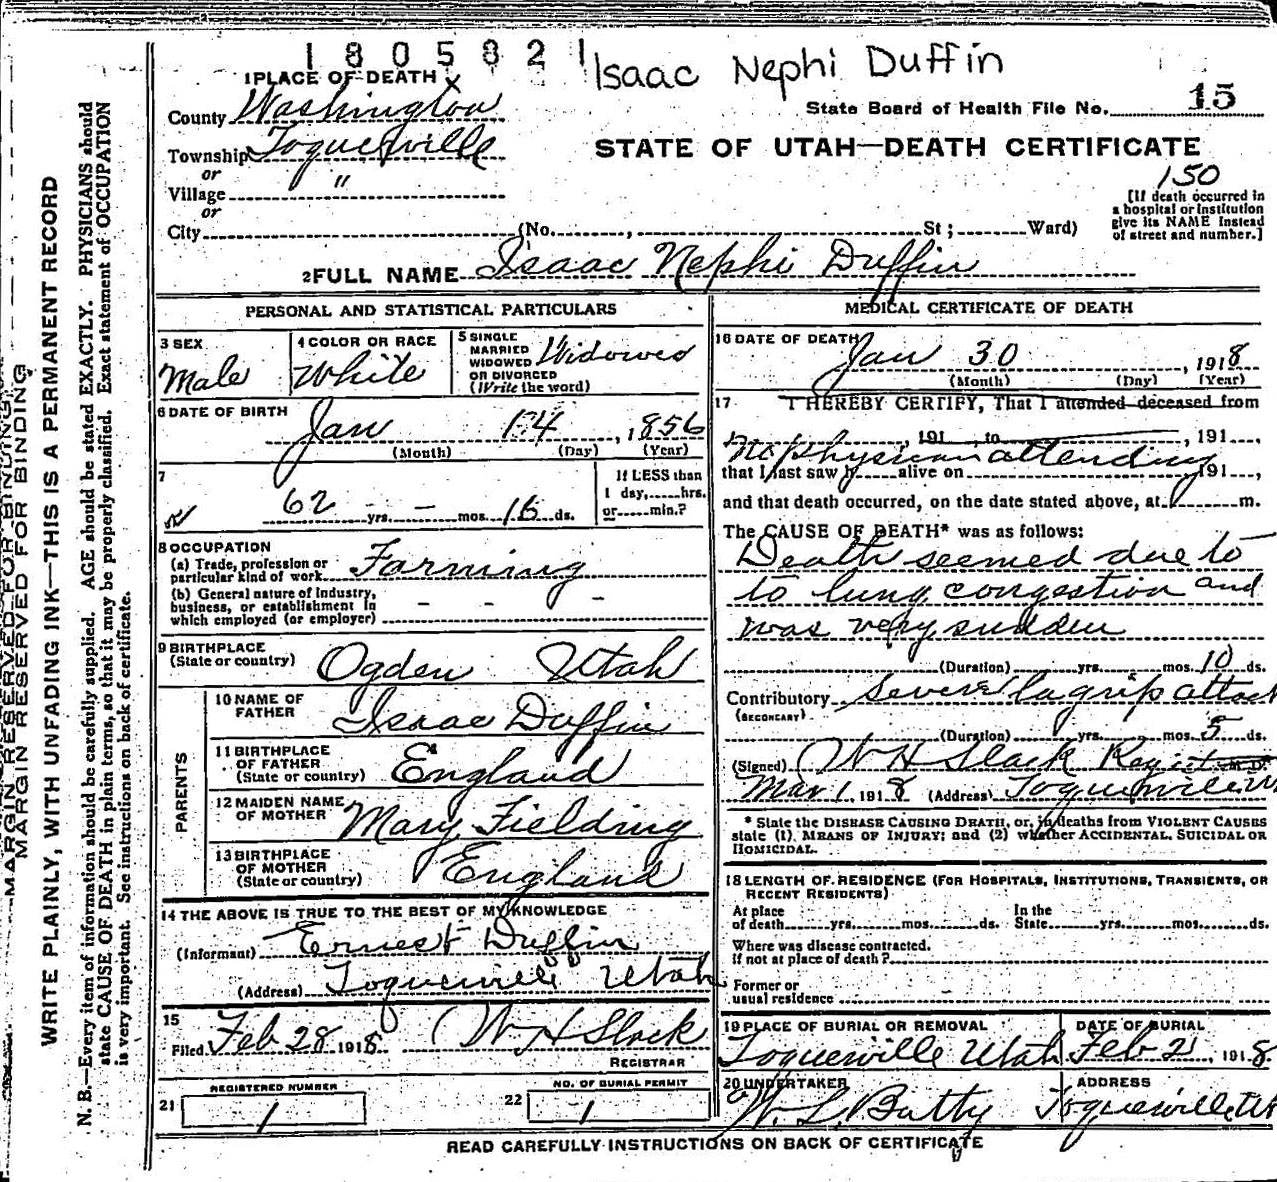 180582
Isaac Nephi Duffin
1 PLACE OF DEATH X
State Board of Health File No. 15
County Washington
STATE OF UTAH—DEATH CERTIFICATE
Township Toquerville
or
150
Village "
or
[If death occurred in
a hospital or institution
give its NAME instead
of street and number.]
City (No. , St ; Ward)
2 FULL NAME Isaac Nephi Duffin
PERSONAL AND STATISTICAL PARTICULARS
3 SEX
Male
4 COLOR OR RACE
White
5 SINGLE
MARRIED
WIDOWED
OR DIVORCED
(Write the word)
Widowed
6 DATE OF BIRTH
Jan 14, 1856
(Month) (Day) (Year)
7
62 yrs. - mos. 16 ds.
If LESS than
1 day,......hrs.
or......min.?
8 OCCUPATION
(a) Trade, profession or
particular kind of work Farming
(b) General nature of industry,
business, or establishment in
which employed (or employer) - - -
9 BIRTHPLACE
(State or country) Ogden Utah
PARENTS
10 NAME OF
FATHER Isaac Duffin
11 BIRTHPLACE
OF FATHER
(State or country) England
12 MAIDEN NAME
OF MOTHER Mary Fielding
13 BIRTHPLACE
OF MOTHER
(State or country) England
14 THE ABOVE IS TRUE TO THE BEST OF MY KNOWLEDGE
(Informant) Ernest Duffin
(Address) Toquerville Utah
15
Filed Feb 28 1918 W H Slack
REGISTRAR
REGISTERED NUMBER
21 1
NO. OF BURIAL PERMIT
22 1
MEDICAL CERTIFICATE OF DEATH
16 DATE OF DEATH
Jan 30, 1918
(Month) (Day) (Year)
17 I HEREBY CERTIFY, That I attended deceased from
, 191 , to , 191 ,
No physician attending
that I last saw h alive on 191 ,
and that death occurred, on the date stated above, at m.
The CAUSE OF DEATH* was as follows:
Death seemed due to
to lung congestion and
was very sudden
(Duration) yrs. mos. 10 ds.
Contributory Severe lagrip attack
(SECONDARY)
(Duration) yrs. mos. 5 ds.
(Signed) W H Slack Regist M.D.
Mar 1, 1918 (Address) Toquerville Ut
* State the DISEASE CAUSING DEATH, or, in deaths from VIOLENT CAUSES
state (1). MEANS OF INJURY; and (2) whether ACCIDENTAL, SUICIDAL OR
HOMICIDAL.
18 LENGTH OF RESIDENCE (FOR HOSPITALS, INSTITUTIONS, TRANSIENTS, OR
RECENT RESIDENTS)
At place
of death......yrs......mos......ds.
In the
State......yrs......mos......ds.
Where was disease contracted.
if not at place of death?
Former or
usual residence
19 PLACE OF BURIAL OR REMOVAL
Toquerville Utah
DATE OF BURIAL
Feb 21, 1918
20 UNDERTAKER
W. L. Batty
ADDRESS
Toquerville Ut
READ CAREFULLY INSTRUCTIONS ON BACK OF CERTIFICATE
MARGIN RESERVED FOR BINDING
MARGIN RESERVED FOR BINDING
WRITE PLAINLY, WITH UNFADING INK—THIS IS A PERMANENT RECORD
N. B.—Every item of information should be carefully supplied. AGE should be stated EXACTLY. PHYSICIANS should
state CAUSE OF DEATH in plain terms, so that it may be properly classified. Exact statement of OCCUPATION
is very important. See instructions on back of certificate.